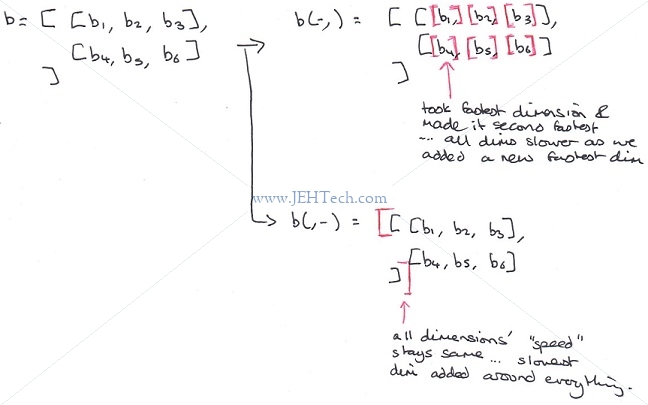 b = [ [b₁, b₂, b₃],
[b₄, b₅, b₆]
]
b(-,) = [ [[b₁], [b₂], [b₃]],
[[b₄], [b₅], [b₆]]
]
took fastest dimension &
made it second fastest
... all dims slower as we
added a new fastest dim
www.JEHTech.com
b(,-) = [[ [b₁, b₂, b₃],
[b₄, b₅, b₆]
]]
all dimensions' "speed"
stays same ... slowest
dim added around everything.